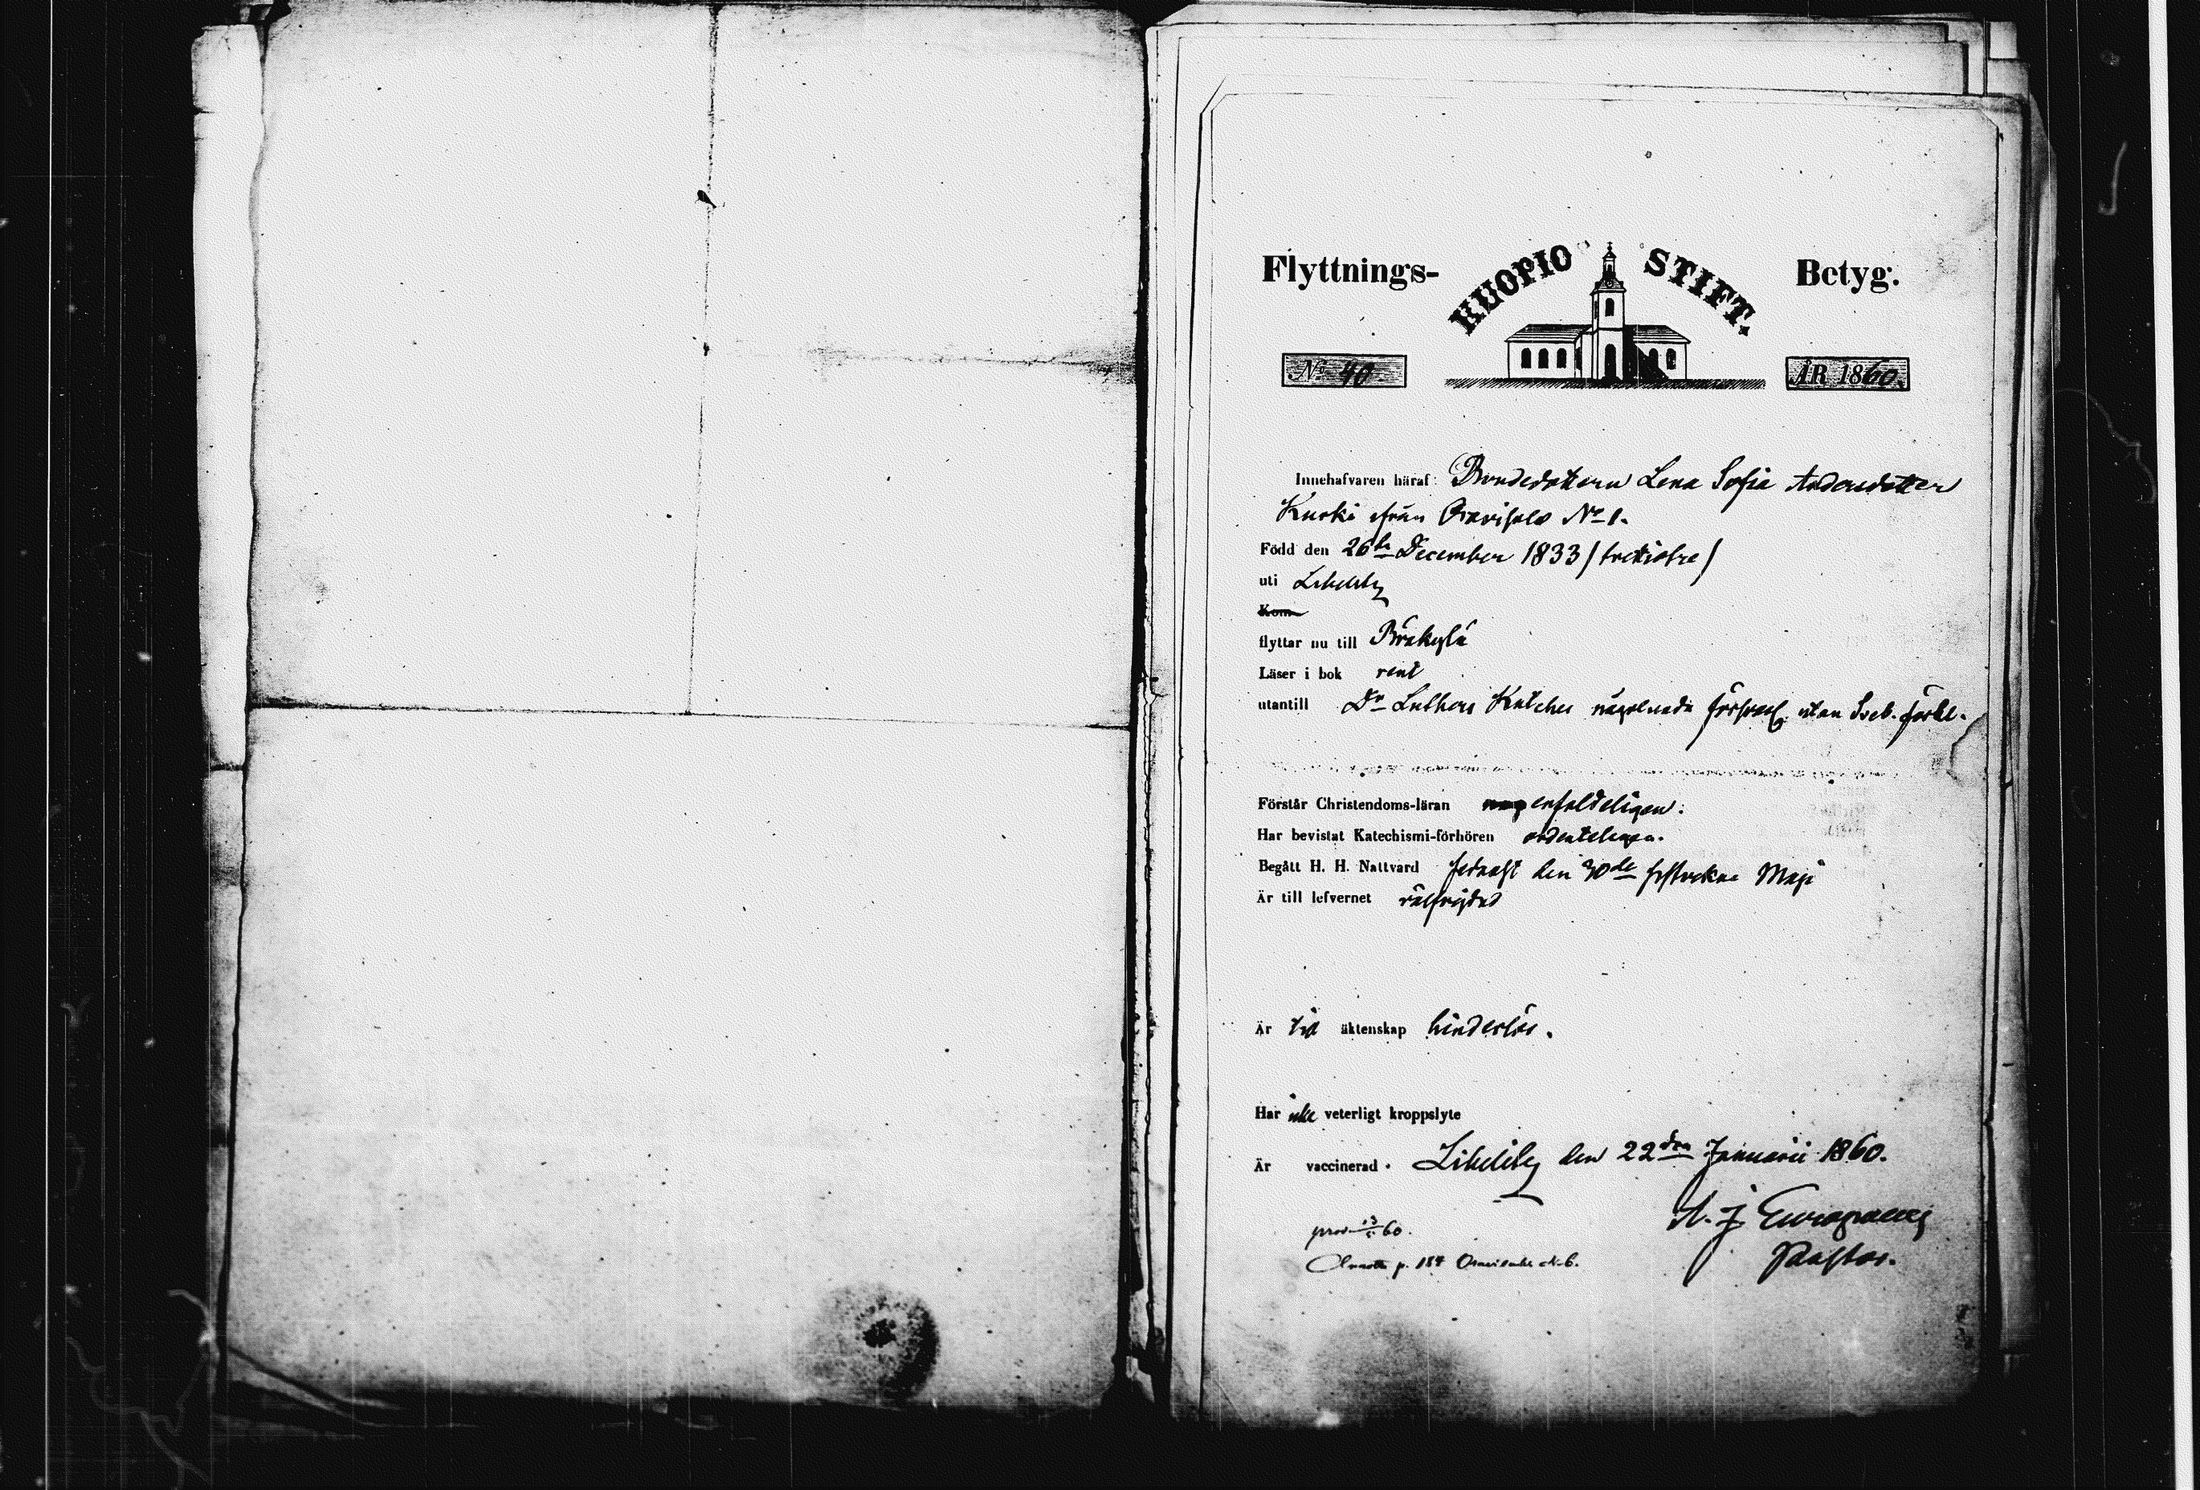 Flyttnings- KUOPIO STIFT. Betyg.
No 40. ÅR 1860.
Innehafvaren häraf: Bondedottern Lena Sofia Andersdotter
Kurki från Oravisalo No 1.
Född den 26de December 1833 / trettiotre /
uti Libelits
Kom
flyttar nu till Bräkylä
Läser i bok rent
utantill Dr Luthers Katches någolunda försvarl. utan Sveb. förkl.
Förstår Christendoms-läran enfaldeligen.
Har bevistat Katechismi-förhören ordenteligen.
Begått H. H. Nattvard sednast den 30de sistvekne Maji
Är till lefvernet välfrejdad
Är till äktenskap hinderlös.
Har icke veterligt kroppslyte
Är vaccinerad. Libelits den 22dra Januarii 1860.
A. J. Europaeus
Pastor.
60.
p. 184 Oravisalo No 6.